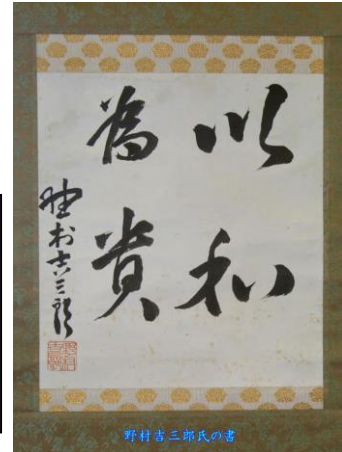 以和
為貴
野村吉三郎
野村吉三郎氏の書